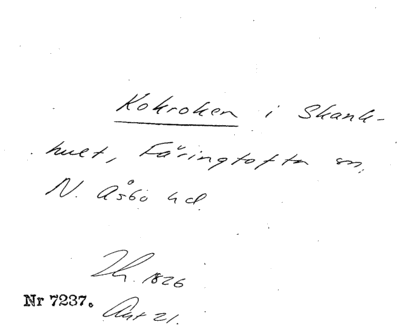 Kokroken i Skank-
hult, Färingtofta sn,
N. Åsbo hd.
Th. 1826
Nr 7237.
Ant 21.